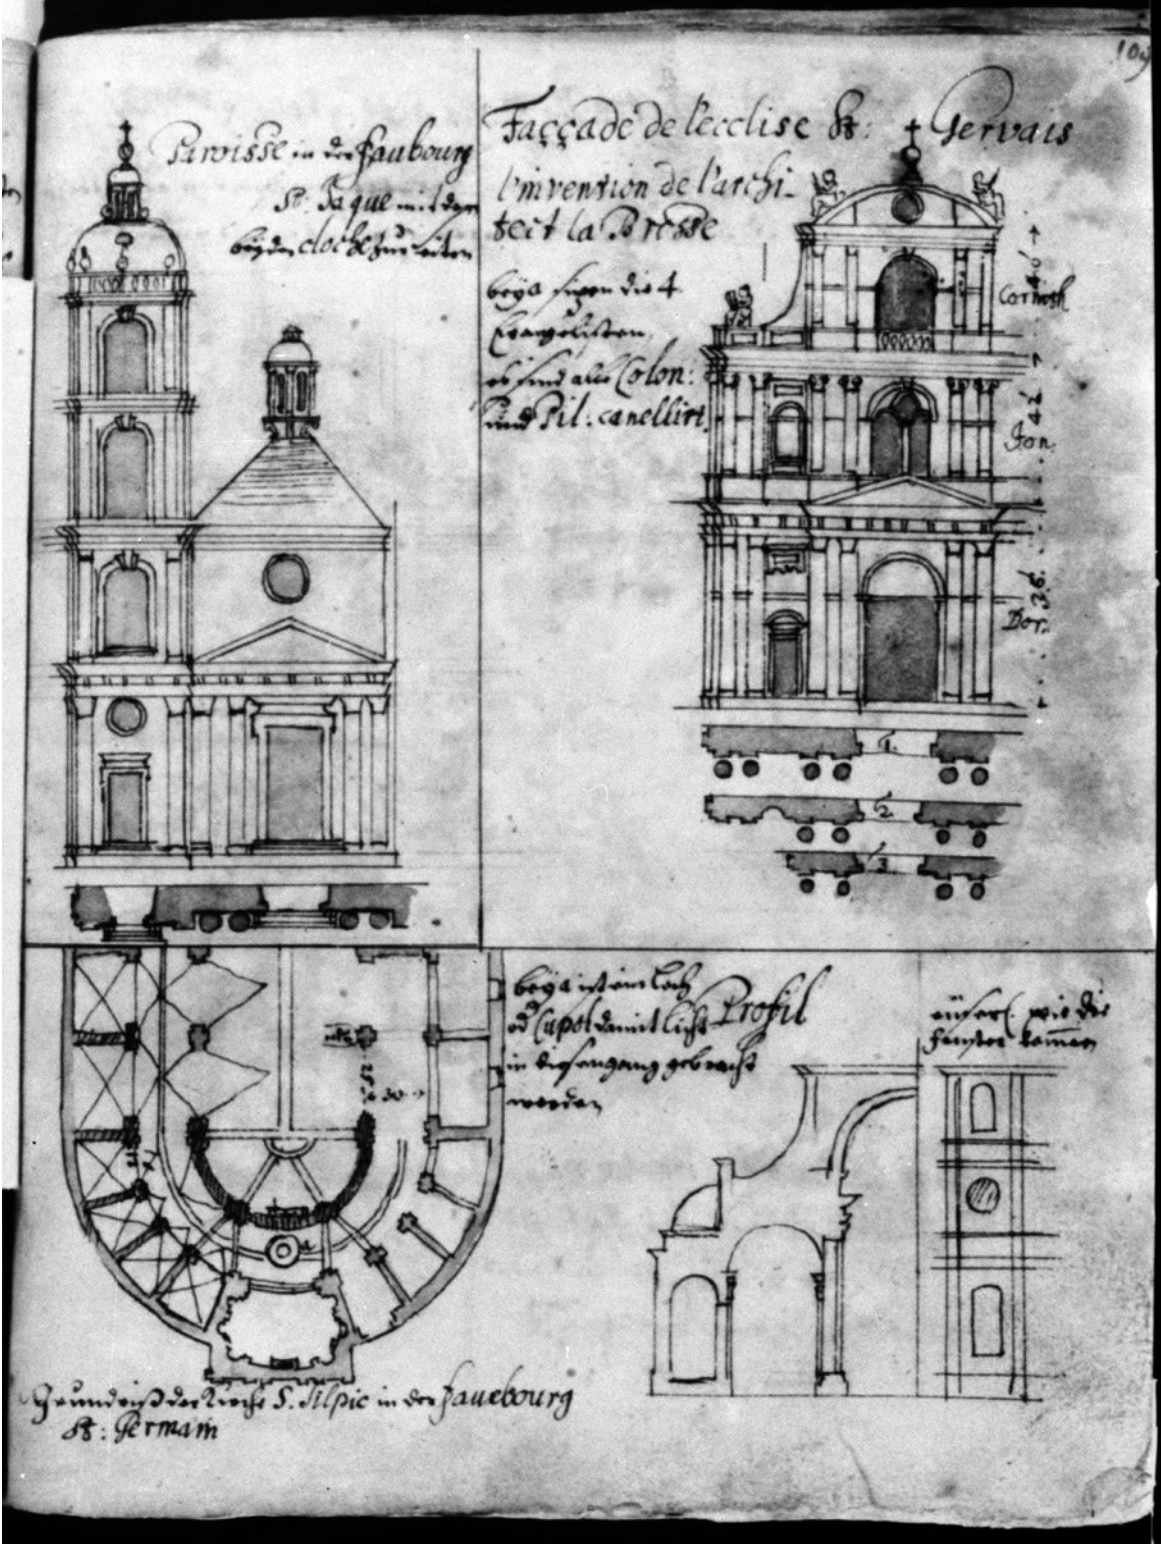 109
Paroisse in der Faubourg
St: Jaque mit den
beyden cloche zur seiten
Façcade de l'ecclise St: Gervais
l'invention de l'archi-
tect la Brosse
beÿ a sitzen die 4
Evangelisten,
es sind alle Colon:
und Pil: canellirt.
40
Corinth
42
Jon.
36
Dor.
1.
2.
3.
beÿ a ist ein loch
od Cupol damit licht
in diesen gang gebracht
werden
Profil
äuserl. wie die
fenster kommen
Grundriß der Kirche S. Silpic in der Fauebourg
St: Germain